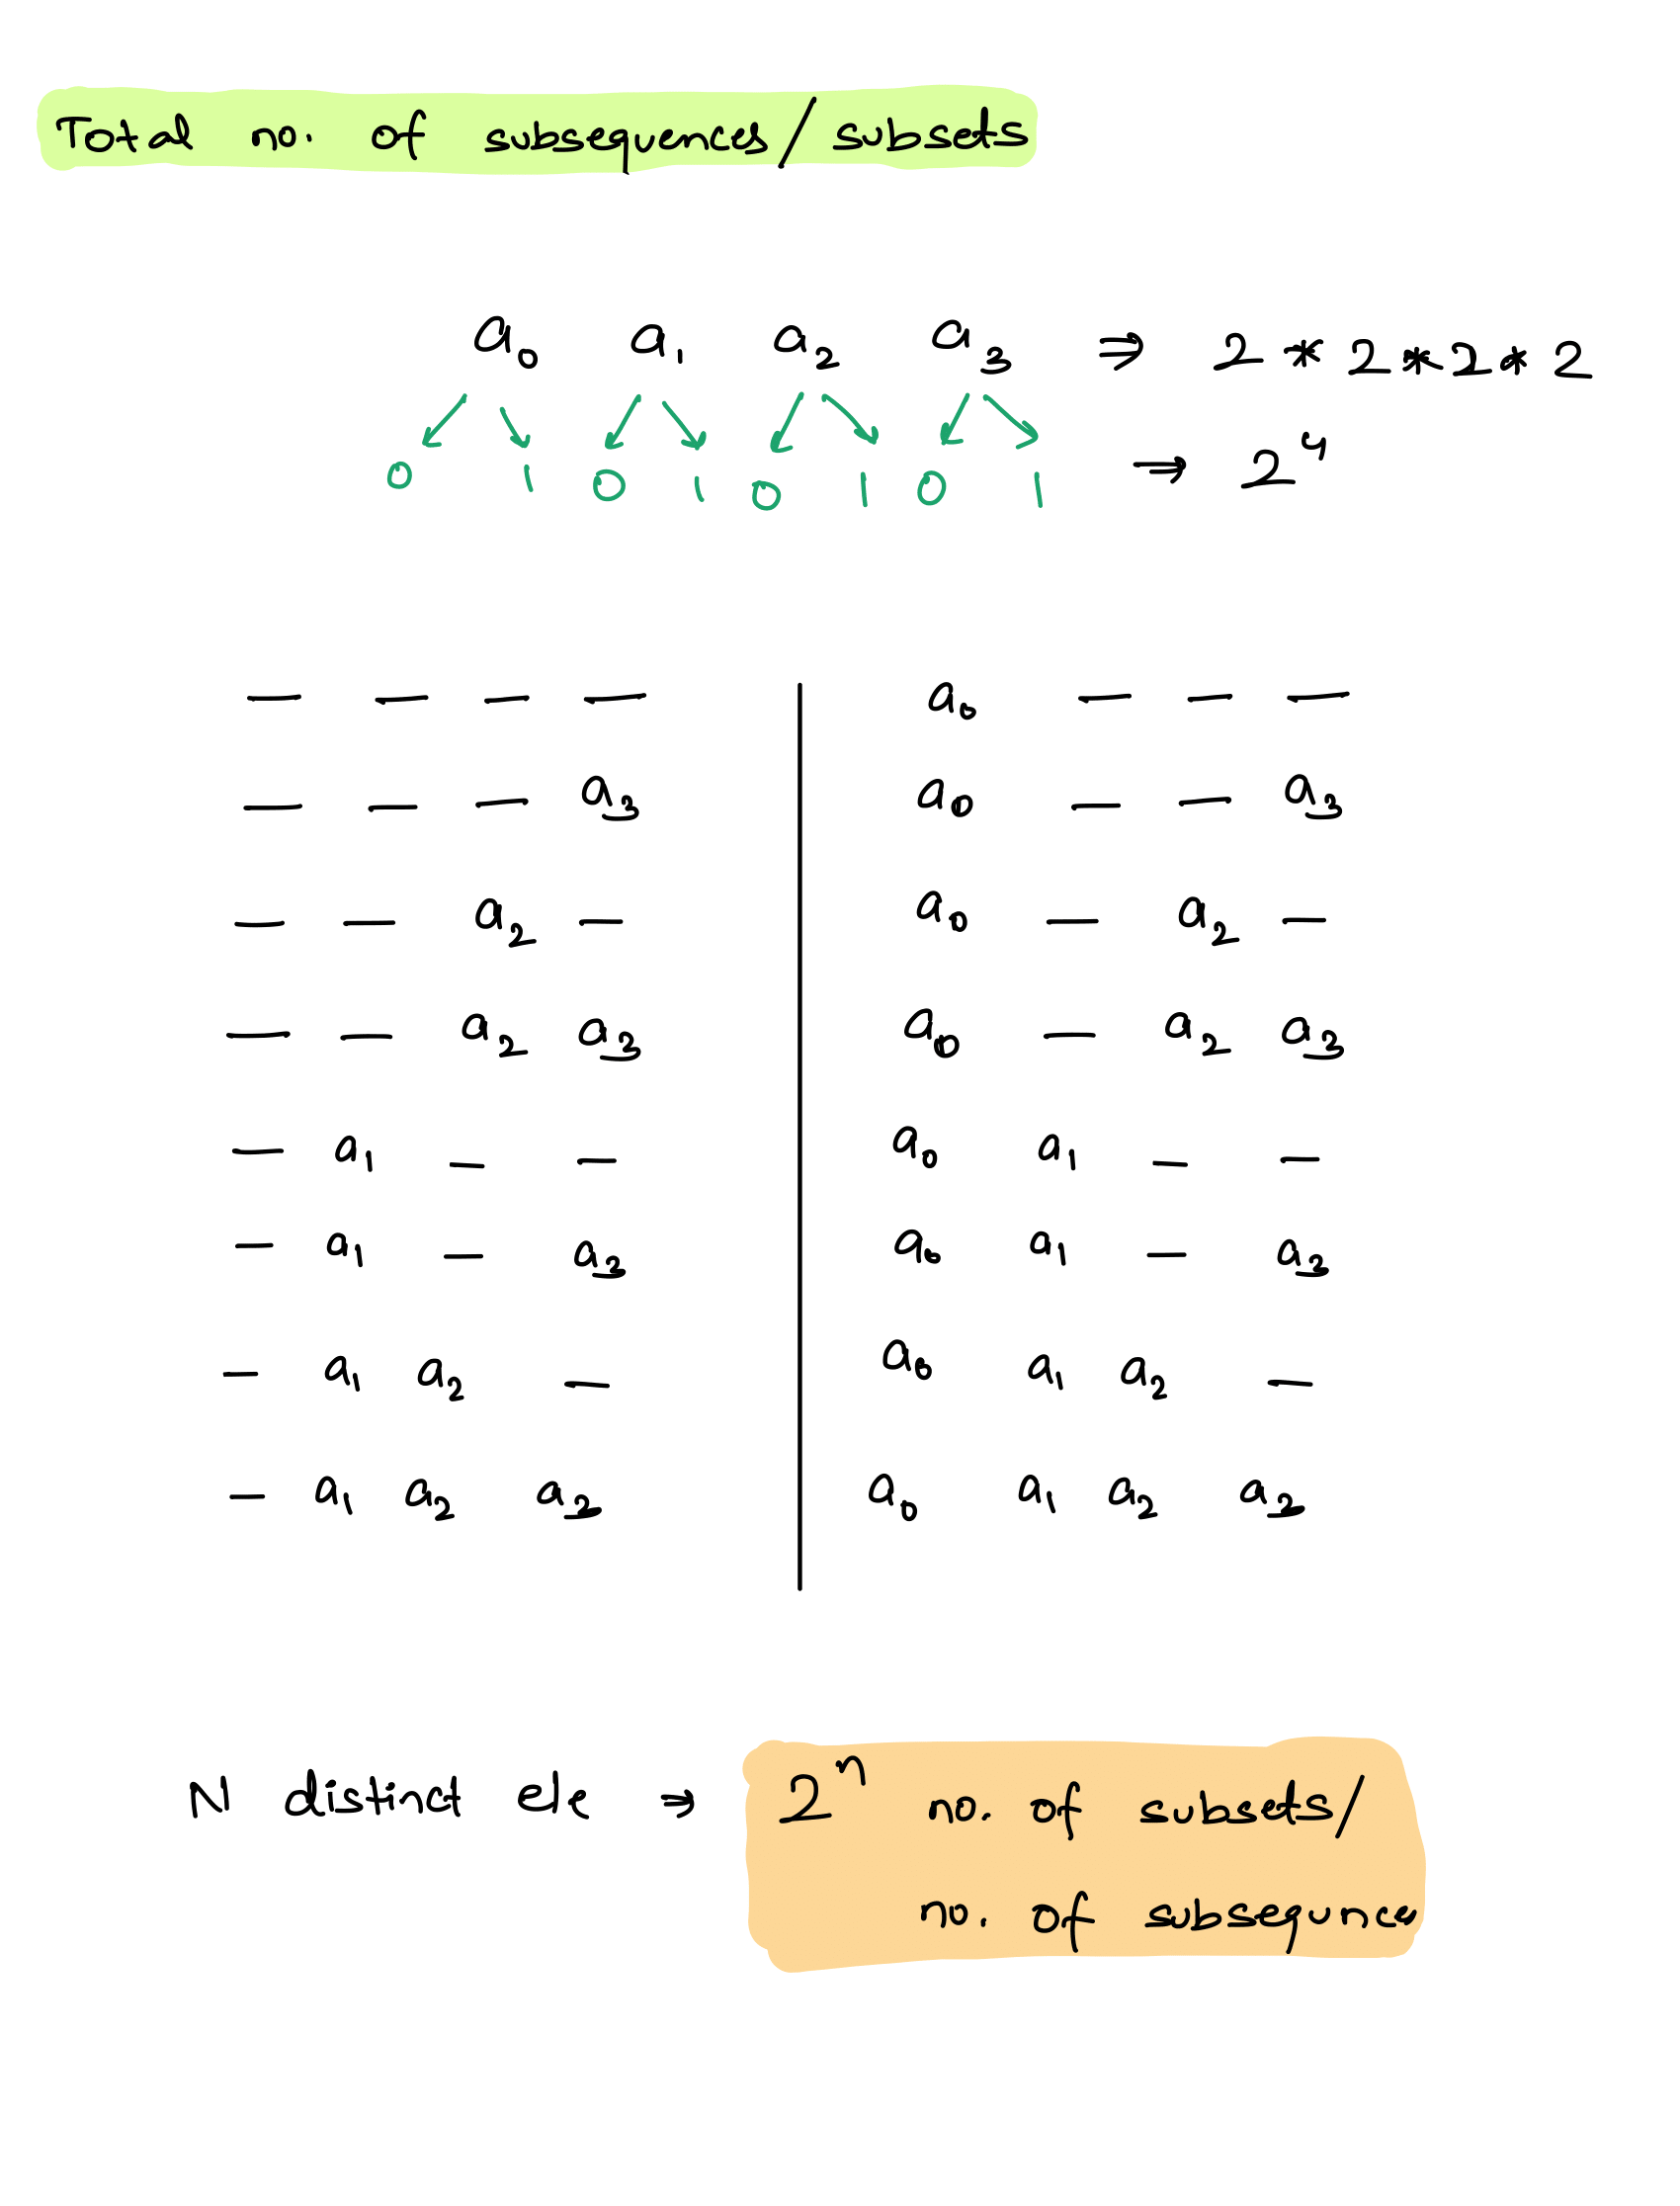 Total no. of subsequences/subsets
a₀ a₁ a₂ a₃ ⇒ 2 * 2 * 2 * 2
0 1 0 1 0 1 0 1 ⇒ 2⁴
— — — — | a₀ — — —
— — — a₃ | a₀ — — a₃
— — a₂ — | a₀ — a₂ —
— — a₂ a₃ | a₀ — a₂ a₃
— a₁ — — | a₀ a₁ — —
— a₁ — a₃ | a₀ a₁ — a₃
— a₁ a₂ — | a₀ a₁ a₂ —
— a₁ a₂ a₃ | a₀ a₁ a₂ a₃
N distinct ele → 2ⁿ no. of subsets/
no. of subsequnces